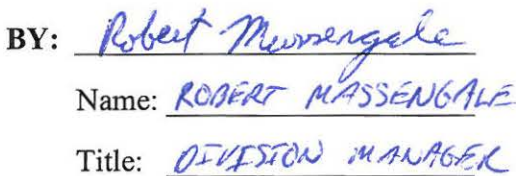 BY: Robert Massengale
Name: ROBERT MASSENGALE
Title: DIVISION MANAGER